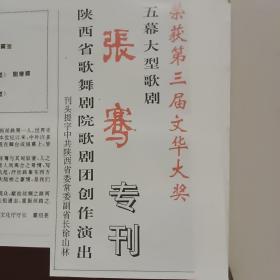 荣获第三届文华大奖
五幕大型歌剧
張骞
专刊
陕西省歌舞剧院歌剧团创作演出
刊头提字中共陕西省委常委副省长徐山林